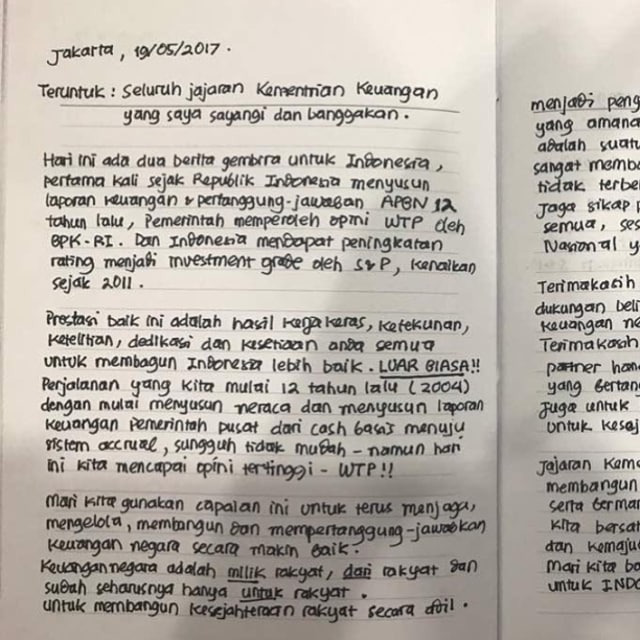 Jakarta, 19/05/2017.
Teruntuk : Seluruh jajaran Kementrian Keuangan
yang saya sayangi dan banggakan.
Hari ini ada dua berita gembira untuk Indonesia,
pertama kali sejak Republik Indonesia menyusun
laporan keuangan & pertanggung-jawaban APBN 12
tahun lalu, Pemerintah memperoleh opini WTP oleh
BPK-RI. Dan Indonesia mendapat peningkatan
rating menjadi investment grade oleh S&P, kenaikan
sejak 2011.
Prestasi baik ini adalah hasil kerja keras, ketekunan,
ketelitian, dedikasi dan kesetiaan anda semua
untuk membagun Indonesia lebih baik. LUAR BIASA!!
Perjalanan yang kita mulai 12 tahun lalu (2004)
dengan mulai menyusun neraca dan menyusun laporan
keuangan Pemerintah pusat dari cash basis menuju
sistem accrual, sungguh tidak mudah - namun hari
ini kita mencapai opini tertinggi - WTP!!
Mari kita gunakan capaian ini untuk terus menjaga,
mengelola, membangun dan mempertanggung-jawabkan
keuangan negara secara makin baik.
Keuangan negara adalah milik rakyat, dari rakyat dan
sudah seharusnya hanya untuk rakyat.
untuk membangun kesejahteraan rakyat secara adil.
menjadi peng
yang amana
adalah suatu
sangat memba
tidak terbe
Jaga sikap p
semua, ses
Nasional y
Terimakasih
dukungan beli
keuangan ne
Terimakasih
partner han
yang bertang
juga untuk
untuk kesej
Jajaran Keme
membangun
serta berma
kita bersat
dan kemaju
Mari kita ba
untuk INDO